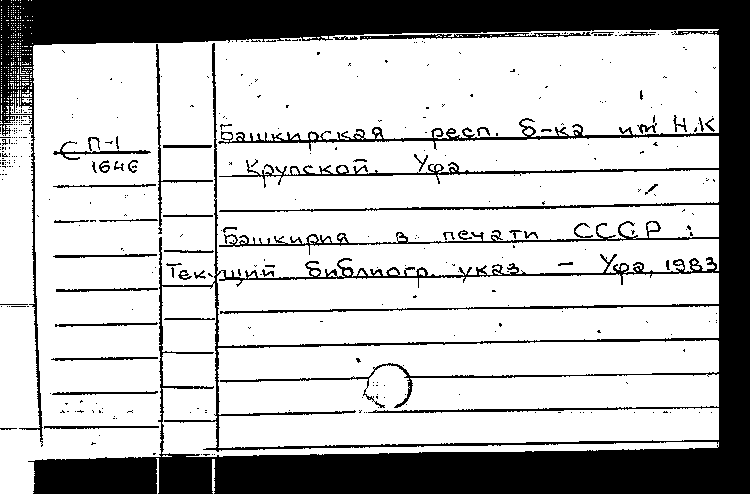 С П-1
1646
Башкирская респ. б-ка им. Н.К
Крупской. Уфа.
Башкирия в печати СССР :
Текущий библиогр. указ. – Уфа, 1983